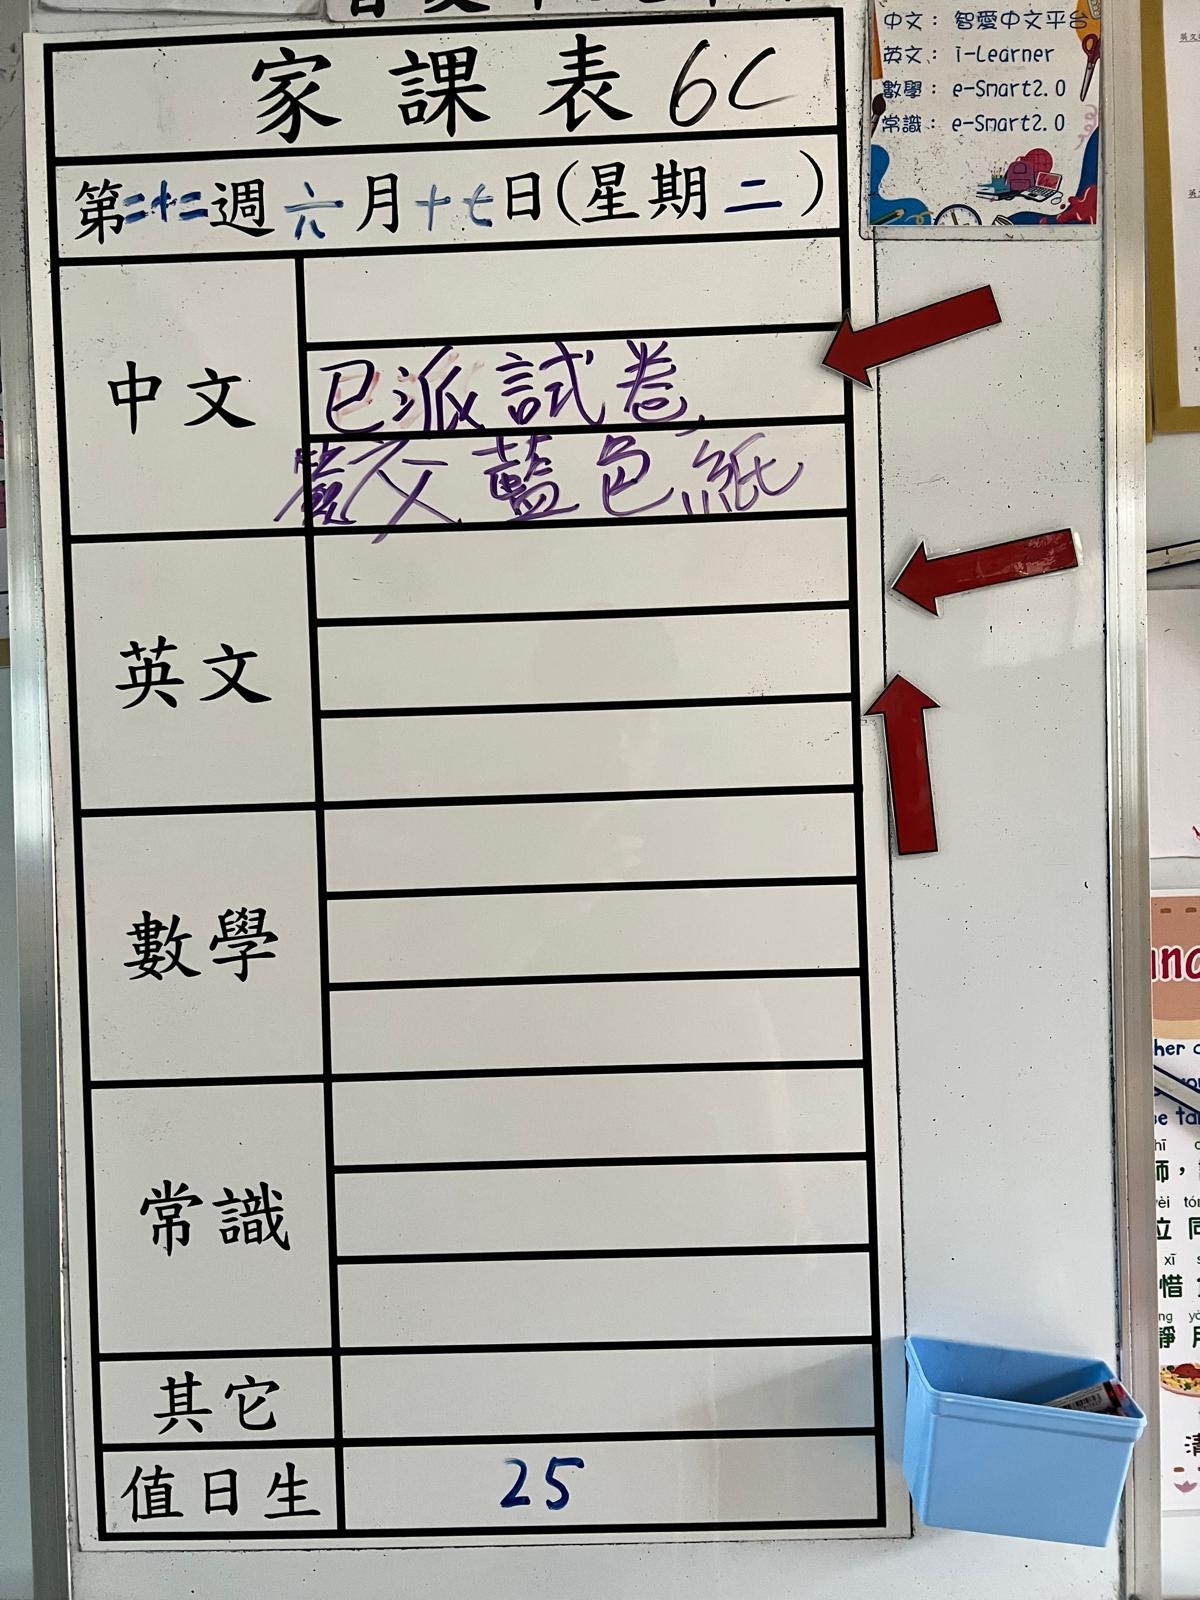 家課表 6C
第二十二週六月十七日(星期二)
中文
已派試卷,
交藍色紙
英文
數學
常識
其它
值日生
25
中文：智愛中文平台
英文：i-Learner
數學：e-Smart2.0
常識：e-Smart2.0